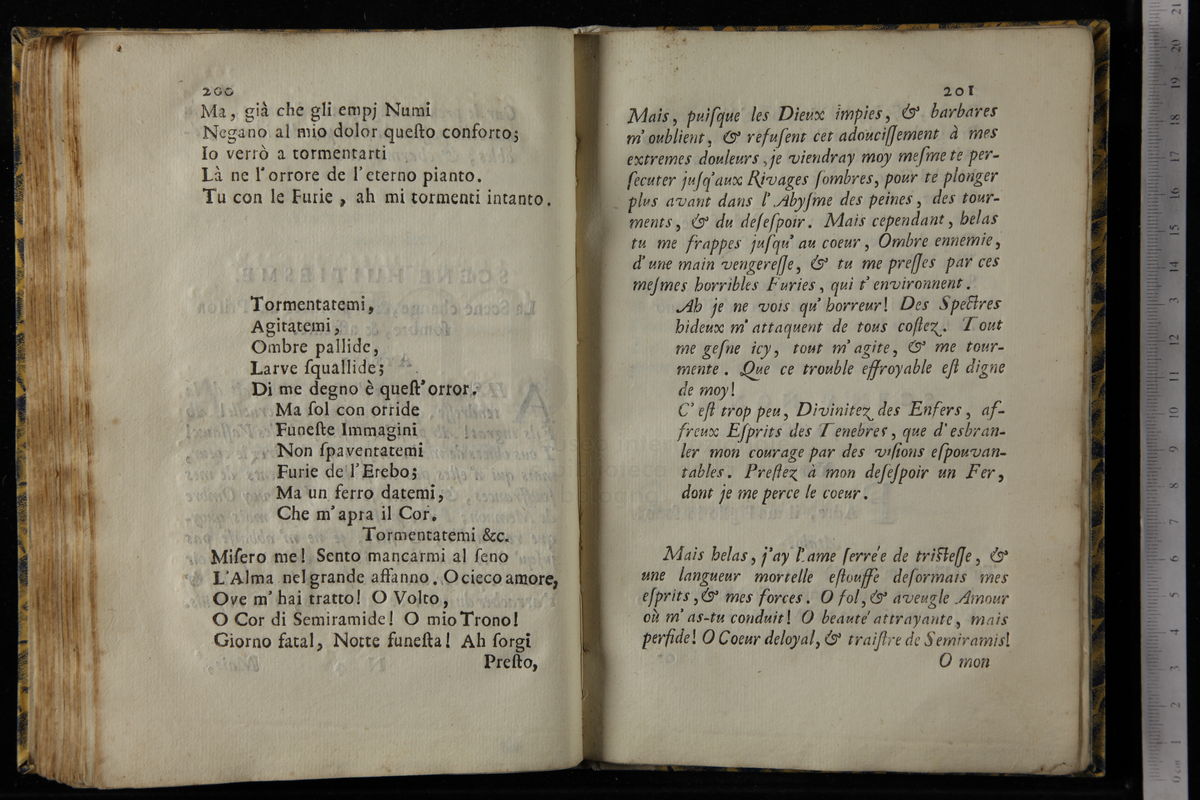 200
Ma, già che gli empj Numi
Negano al mio dolor queſto conforto;
Io verrò a tormentarti
Là ne l'orrore de l'eterno pianto.
Tu con le Furie, ah mi tormenti intanto.
Tormentatemi,
Agitatemi,
Ombre pallide,
Larve ſquallide;
Di me degno è queſt'orror.
Ma ſol con orride
Funeſte Immagini
Non ſpaventatemi
Furie de l'Erebo;
Ma un ferro datemi,
Che m'apra il Cor.
Tormentatemi &c.
Miſero me! Sento mancarmi al ſeno
L'Alma nel grande affanno. O cieco amore,
Ove m'hai tratto! O Volto,
O Cor di Semiramide! O mio Trono!
Giorno fatal, Notte funeſta! Ah ſorgi
Preſto,
201
Mais, puiſque les Dieux impies, & barbares
m'oublient, & refuſent cet adouciſſement à mes
extremes douleurs, je viendray moy meſme te per-
ſecuter juſq'aux Rivages ſombres, pour te plonger
plus avant dans l'Abyſme des peines, des tour-
ments, & du deſeſpoir. Mais cependant, helas
tu me frappes juſqu'au coeur, Ombre ennemie,
d'une main vengereſſe, & tu me preſſes par ces
meſmes horribles Furies, qui t'environnent.
Ah je ne vois qu'horreur! Des Spectres
hideux m'attaquent de tous coſtez. Tout
me geſne icy, tout m'agite, & me tour-
mente. Que ce trouble effroyable eſt digne
de moy!
C'eſt trop peu, Divinitez des Enfers, af-
freux Eſprits des Tenebres, que d'esbran-
ler mon courage par des viſions eſpouvan-
tables. Preſtez à mon deſeſpoir un Fer,
dont je me perce le coeur.
Mais helas, j'ay l'ame ſerrée de triſteſſe, &
une langueur mortelle eſtouffe deſormais mes
eſprits, & mes forces. O fol, & aveugle Amour
où m'as-tu conduit! O beauté attrayante, mais
perfide! O Coeur deloyal, & traiſtre de Semiramis!
O mon